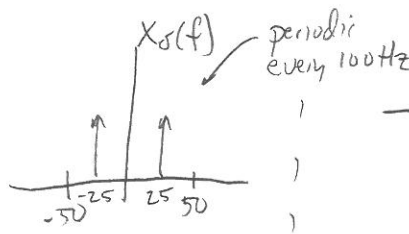 X_σ(f)
periodic
every 100Hz
-50 -25 25 50